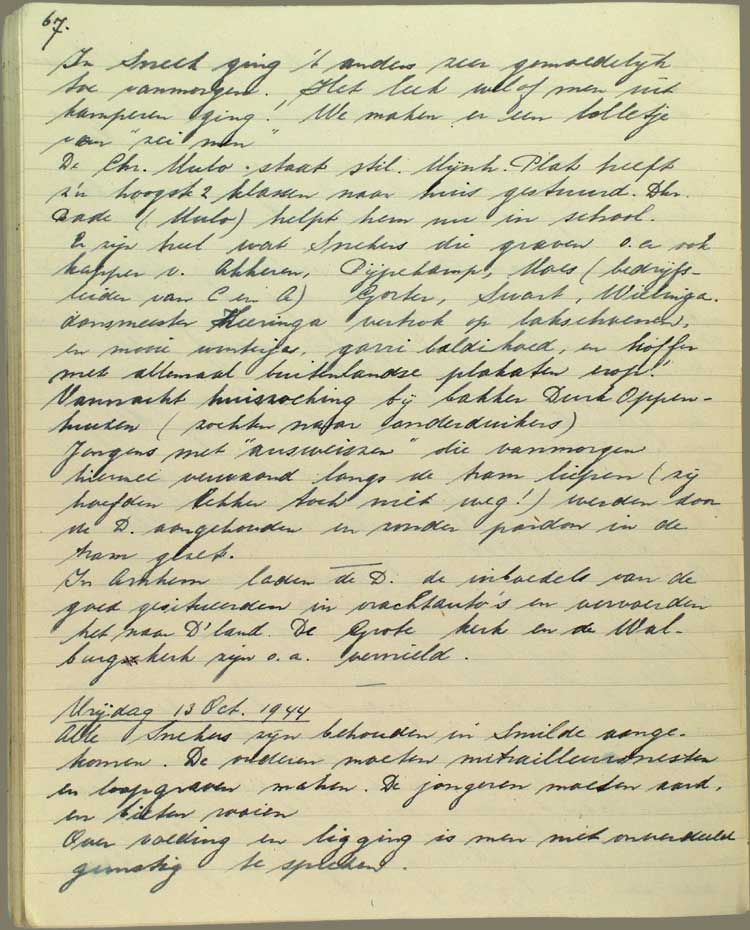 67.
In Sneek ging 't anders zeer gemoedelijk
toe vanmorgen. Het leek wel of men uit
kamperen ging! We maken er een lolletje
van "zei men"
De Chr. Mulo staat stil. Mijnh. Plat heeft
z'n hoogste 2 klassen naar huis gestuurd. Dhr.
Bade (Mulo) helpt hem nu in school.
Er zijn heel wat Snekers die graven o.a. ook
kapper v. Akkeren, Pijpekamp, Maes (bedrijfs-
leider van C en A) Gorter, Swart, Wielinga.
dansmeester Heeringa vertrok op lakschoenen,
en mooie winterjas, garri baldi hoed, en koffer
met allemaal buitenlandse plakaten erop!
Vannacht huiszoeking bij bakker Durk Oppen-
huizen (zochten naar onderduikers)
Jongens met "ausweiszen" die vanmorgen
hiermee verwaand langs de tram liepen (zij
hoefden lekker toch niet weg!) werden door
de D. aangehouden en zonder pardon in de
tram gezet.
In Arnhem laden de D. de inboedels van de
goed gesitueerden in vrachtauto's en vervoerden
het naar D'land. De Grote kerk en de Wal-
burg kerk zijn o.a. vernield.
Vrijdag 13 Oct. 1944
Alle Snekers zijn behouden in Smilde aange-
komen. De ouderen moeten mitrailleursnesten
en loopgraven maken. De jongeren moeten aard.
en bieten rooien
Over voeding en ligging is men niet onverdeeld
gunstig te spreken.